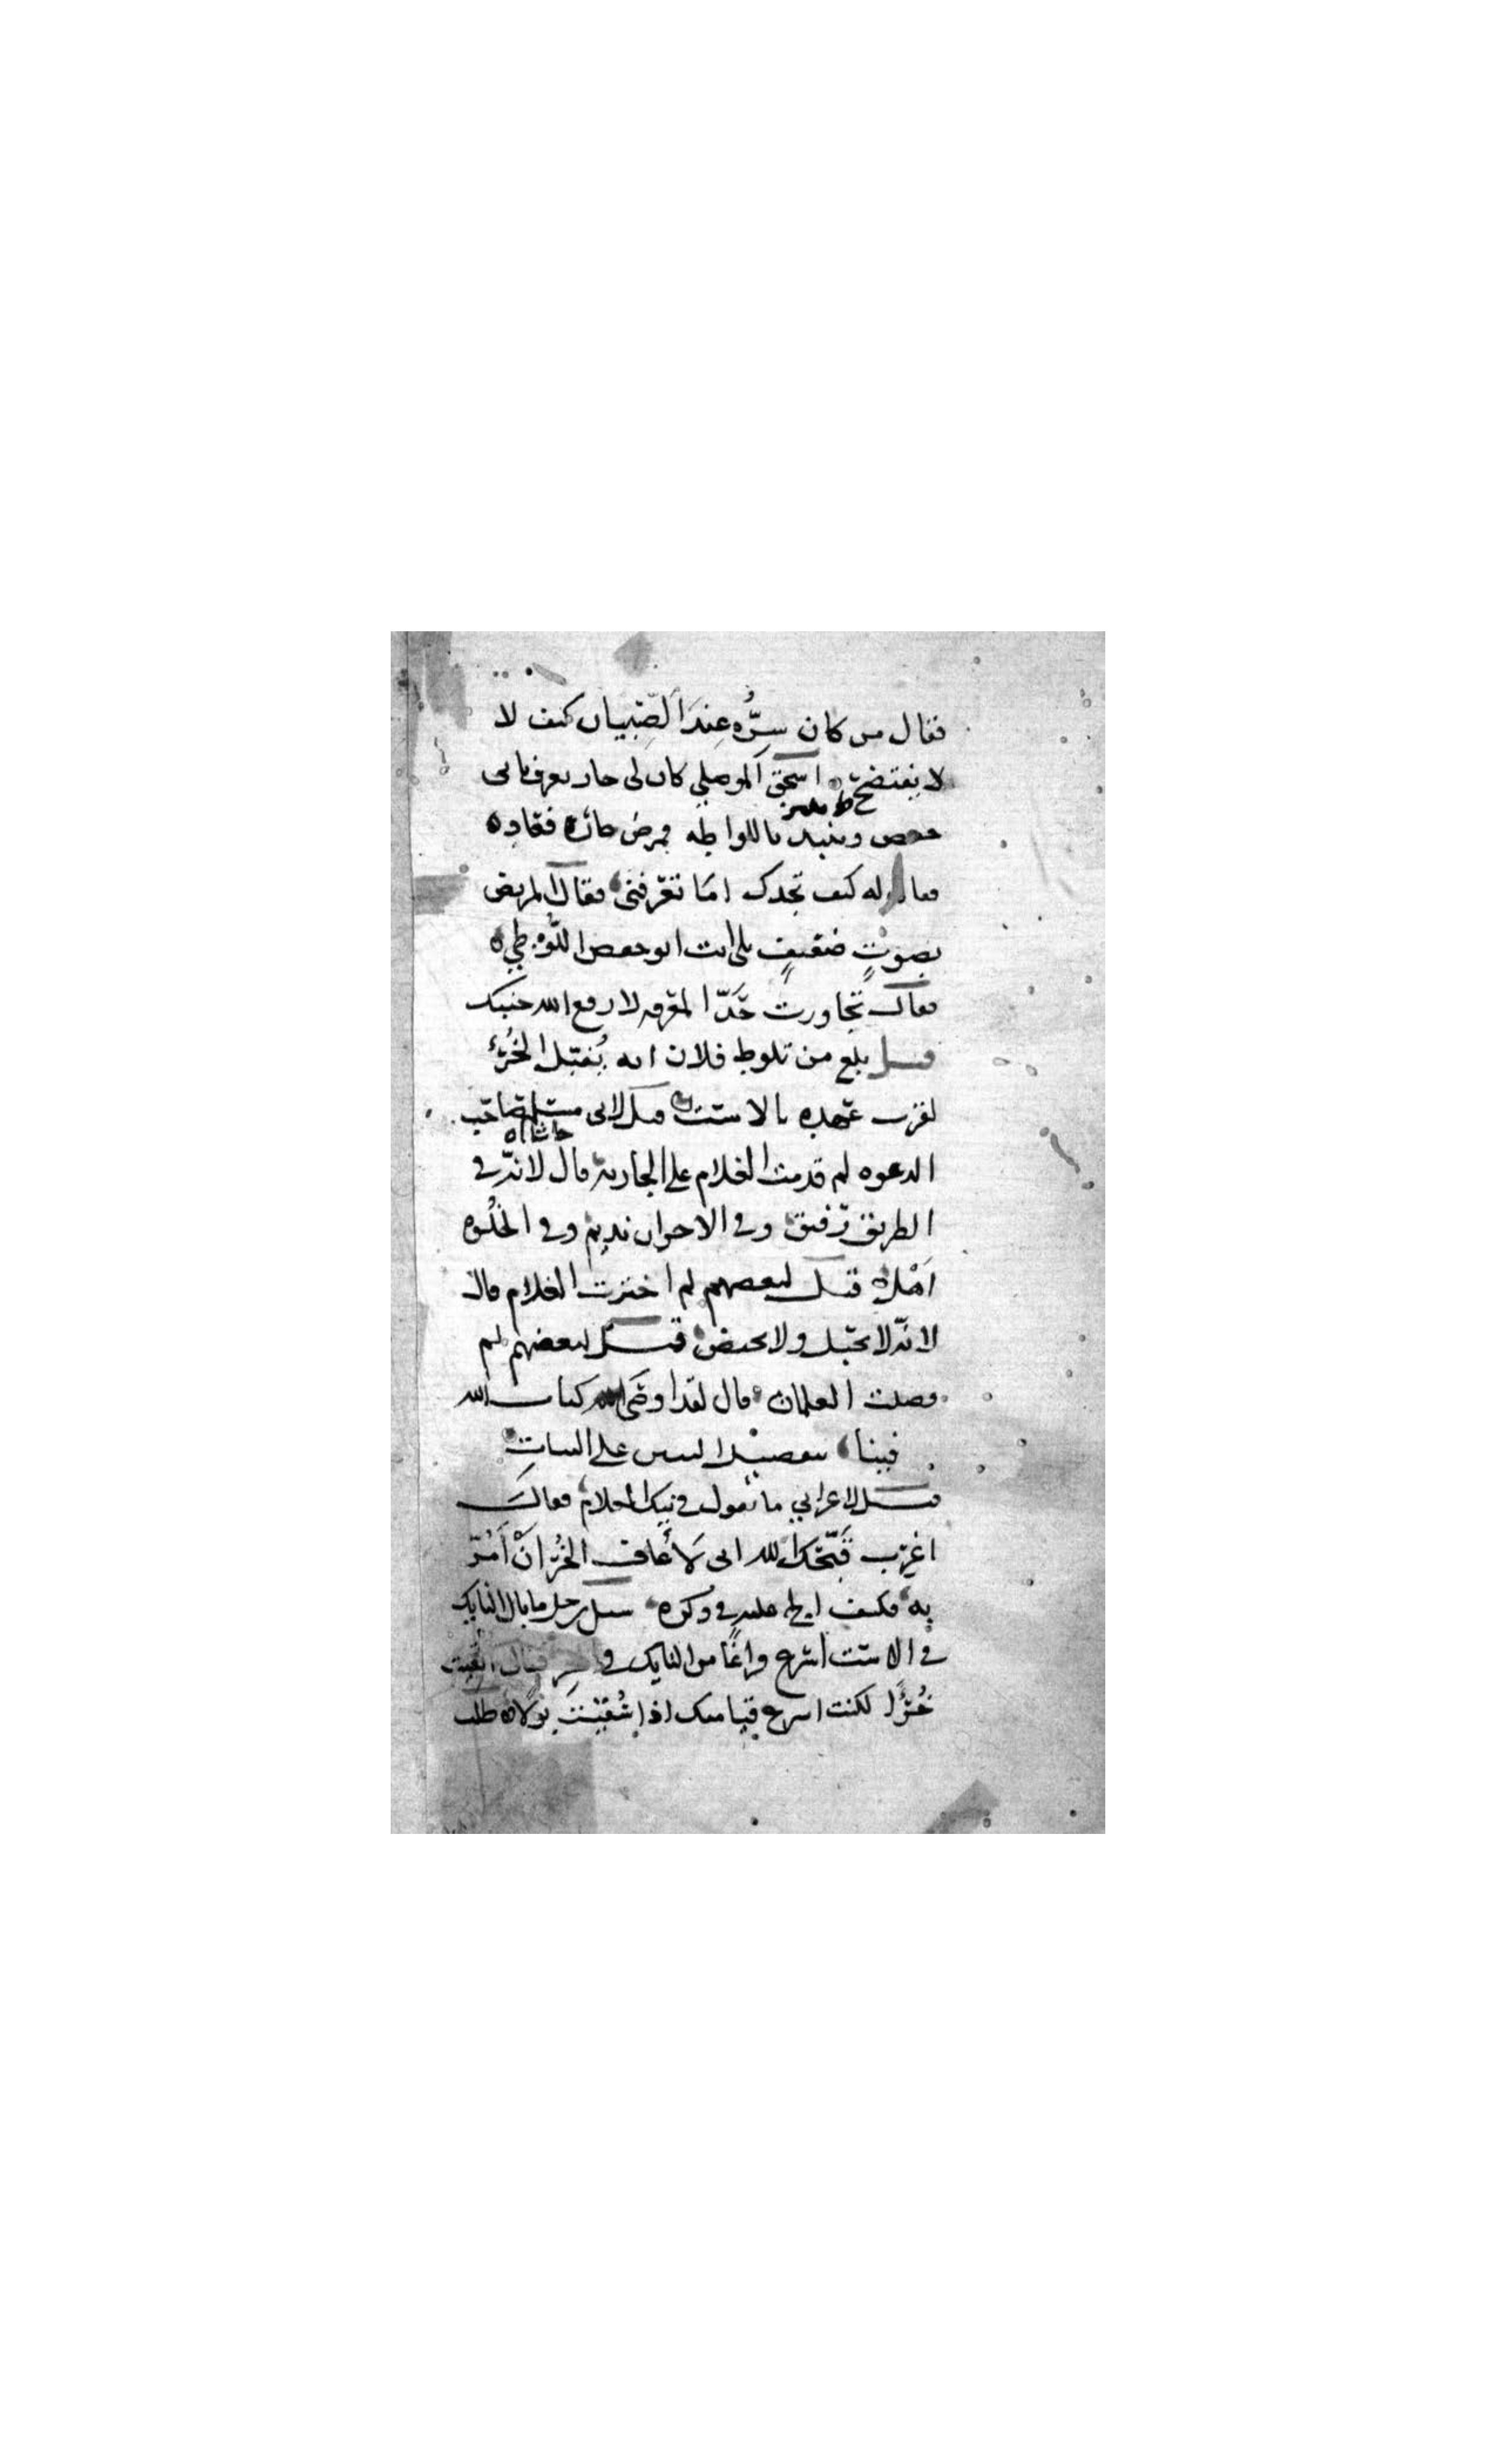 فقال من كان سِرُّه عِندَ الصِّبيان كيف لا
لا يفتضح اسحق الموصلي كان لى جار يعرف بابى
حفص وينبز باللواطه فمرض جاره فعاده
فقال له كيف تجدك اما تعرفنى فقال المريض
بصوتٍ ضعيفٍ بلى انت ابو حفص اللُّوطِي
فقال تجاوزت حَدّ المعرفه لا رفع الله جنبك
قيل بلغ من تلوط فلان انه يُقبّل الخُرْءَ
لقرب عهده بالاست قيل لابى مسلم صاحب
حاشاه
الدعوه لم قدمت الغلام على الجارية قال لانّه فى
الطريق رفيق وفى الاخوان نديم وفى الخلوه
اهل قيل لبعضهم لم اخترت الغلام قال
لانّه لا يحبل ولا يحيض قيل لبعضهم لم
فضلت الغلمان قال لقد اوضح كتاب الله
فينا بتفضيل البنين على البنات
قيل لاعرابي ما تقول فى نيك الغلام فقال
اغرب قَبّحك الله انى لَأَعاف الخُرْءَ انْ أَمُرّ
به فكيف الج عليه فى وكره سئل رجل ما بال النايك
فى الاست اسرع فراغًا من النايك فى فقال
خُرْءًا لكنت اسرع قيامك اذا سُقيت بَوْلًا طلب